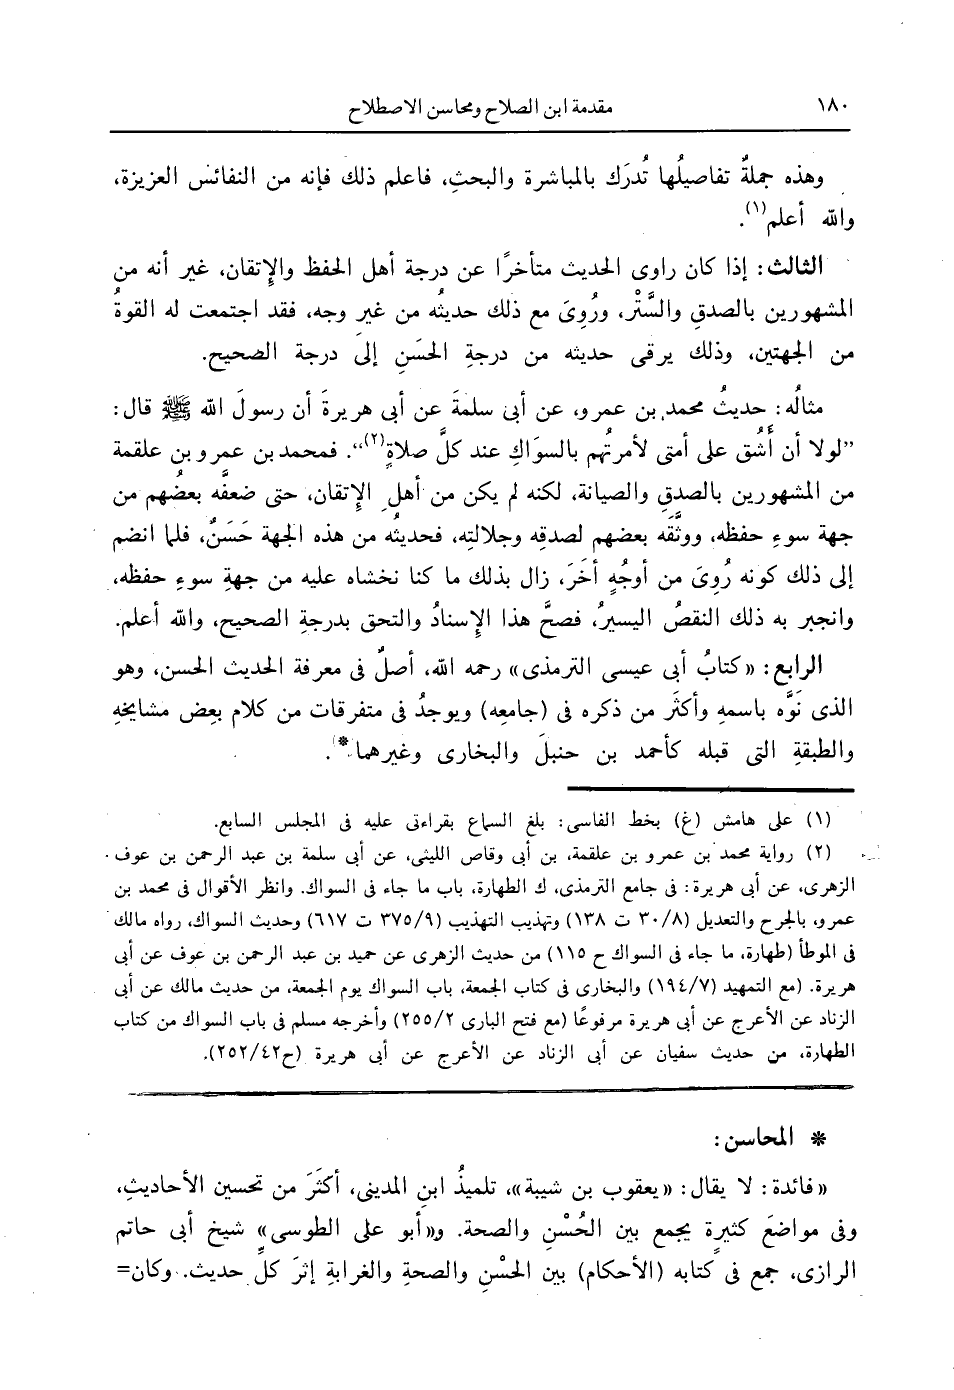 ١٨٠
مقدمة ابن الصلاح ومحاسن الاصطلاح
وهذه جملةٌ تفاصيلُها تُدرَك بالمباشرة والبحثِ، فاعلم ذلك فإنه من النفائس العزيزة،
والله أعلم(١).
الثالث: إذا كان راوى الحديث متأخرًا عن درجة أهل الحفظ والإتقان، غير أنه من
المشهورين بالصدقِ والسَّتْر، ورُوِىَ مع ذلك حديثُه من غير وجه، فقد اجتمعت له القوةُ
من الجهتين، وذلك يرقى حديثه من درجةِ الحسَنِ إلىَ درجة الصحيح.
مثالُه: حديثُ محمد بن عمرو، عن أبى سلمةَ عن أبى هريرةَ أن رسولَ الله ﷺ قال:
”لولا أن أَشُق على أمتى لأمرتُهم بالسوَاكِ عند كلِّ صلاةٍ(٢)“. فمحمد بن عمرو بن علقمة
من المشهورين بالصدقِ والصيانة، لكنه لم يكن من أهلِ الإتقان، حتى ضعفَّه بعضُهم من
جهة سوءِ حفظه، ووثَّقَه بعضهم لصدقِه وجلالتِه، فحديثُه من هذه الجهة حَسَنٌ، فلما انضم
إلى ذلك كونه رُوِىَ من أوجُهٍ أخَرَ، زال بذلك ما كنا نخشاه عليه من جهةِ سوءِ حفظه،
وانجبر به ذلك النقصُ اليسيرُ، فصحَّ هذا الإسنادُ والتحق بدرجةِ الصحيح، والله أعلم.
الرابع: «كتابُ أبى عيسى الترمذى» رحمه الله، أصلٌ فى معرفة الحديث الحسن، وهو
الذى نَوَّه باسمهِ وأكثَر من ذكره فى (جامعِه) ويوجدُ فى متفرقات من كلام بعض مشايخهِ
والطبقةِ التى قبله كأحمد بن حنبلَ والبخارى وغيرهما*.
(١) على هامش (غ) بخط الفاسى: بلغ السماع بقراءتى عليه فى المجلس السابع.
(٢) رواية محمد بن عمرو بن علقمة، بن أبى وقاص الليثى، عن أبى سلمة بن عبد الرحمن بن عوف
الزهرى، عن أبى هريرة: فى جامع الترمذى، ك الطهارة، باب ما جاء فى السواك. وانظر الأقوال فى محمد بن
عمرو، بالجرح والتعديل (٣٠/٨ ت ١٣٨) وتهذيب التهذيب (٣٧٥/٩ ت ٦١٧) وحديث السواك، رواه مالك
فى الموطأ (طهارة، ما جاء فى السواك ح ١١٥) من حديث الزهرى عن حميد بن عبد الرحمن بن عوف عن أبى
هريرة. (مع التمهيد (١٩٤/٧) والبخارى فى كتاب الجمعة، باب السواك يوم الجمعة، من حديث مالك عن أبى
الزناد عن الأعرج عن أبى هريرة مرفوعًا (مع فتح البارى ٢٥٥/٢) وأخرجه مسلم فى باب السواك من كتاب
الطهارة، من حديث سفيان عن أبى الزناد عن الأعرج عن أبى هريرة (ح٢٥٢/٤٢).
* المحاسن:
«فائدة: لا يقال: «يعقوب بن شيبة»، تلميذُ ابنِ المدينى، أكثَرَ من تحسين الأحاديثِ،
وفى مواضعَ كثيرةٍ يجمع بين الحُسْنِ والصحة. و«أبو على الطوسى» شيخ أبى حاتم
الرازى، جمع فى كتابه (الأحكام) بين الحسْنِ والصحةِ والغرابةِ إثرَ كلِّ حديث. وكان=